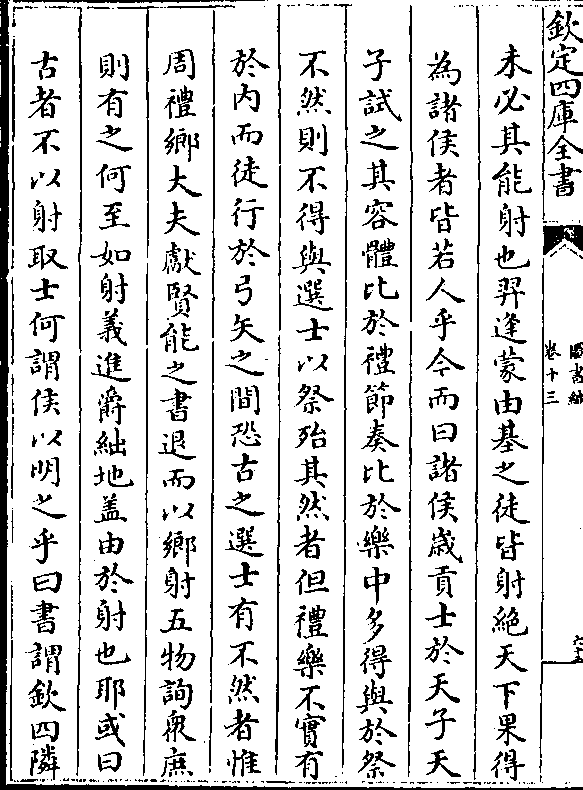 欽定四庫全書
卷十三
未必其能射也羿逢蒙由基之徒皆射絶天下果得
為諸侯者皆若人乎今而曰諸侯歲貢士於天子天
子試之其容體比於禮節奏比於樂中多得與於祭
不然則不得與選士以祭殆其然者但禮樂不實有
於内而徒行於弓矢之間恐古之選士有不然者惟
周禮鄉大夫獻賢能之書退而以鄉射五物詢衆庶
則有之何至如射義進爵紬地盖由於射也耶或曰
古者不以射取士何謂侯以明之乎曰書謂欽四隣